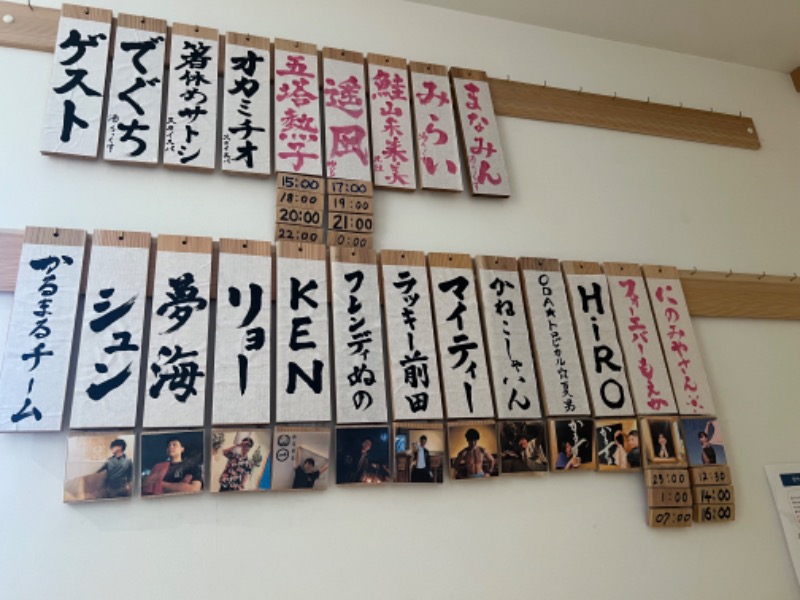 ゲスト
でぐち
箸休めサトシ
スカイスパ
オカミチオ
スカイスパ
五塔熱子
15:00
18:00
20:00
22:00
遙風
17:00
19:00
21:00
0:00
鮭山未菜美
みらい
まなみん
かるまるチーム
シュン
夢海
リョー
KEN
フレンディぬの
ラッキー前田
マイティー
かねこしゃハん
ODA★トロピカル☆夏男
HiRO
フォーエバーもえか
23:00
1:00
07:00
にのみやさん
12:30
14:00
16:00